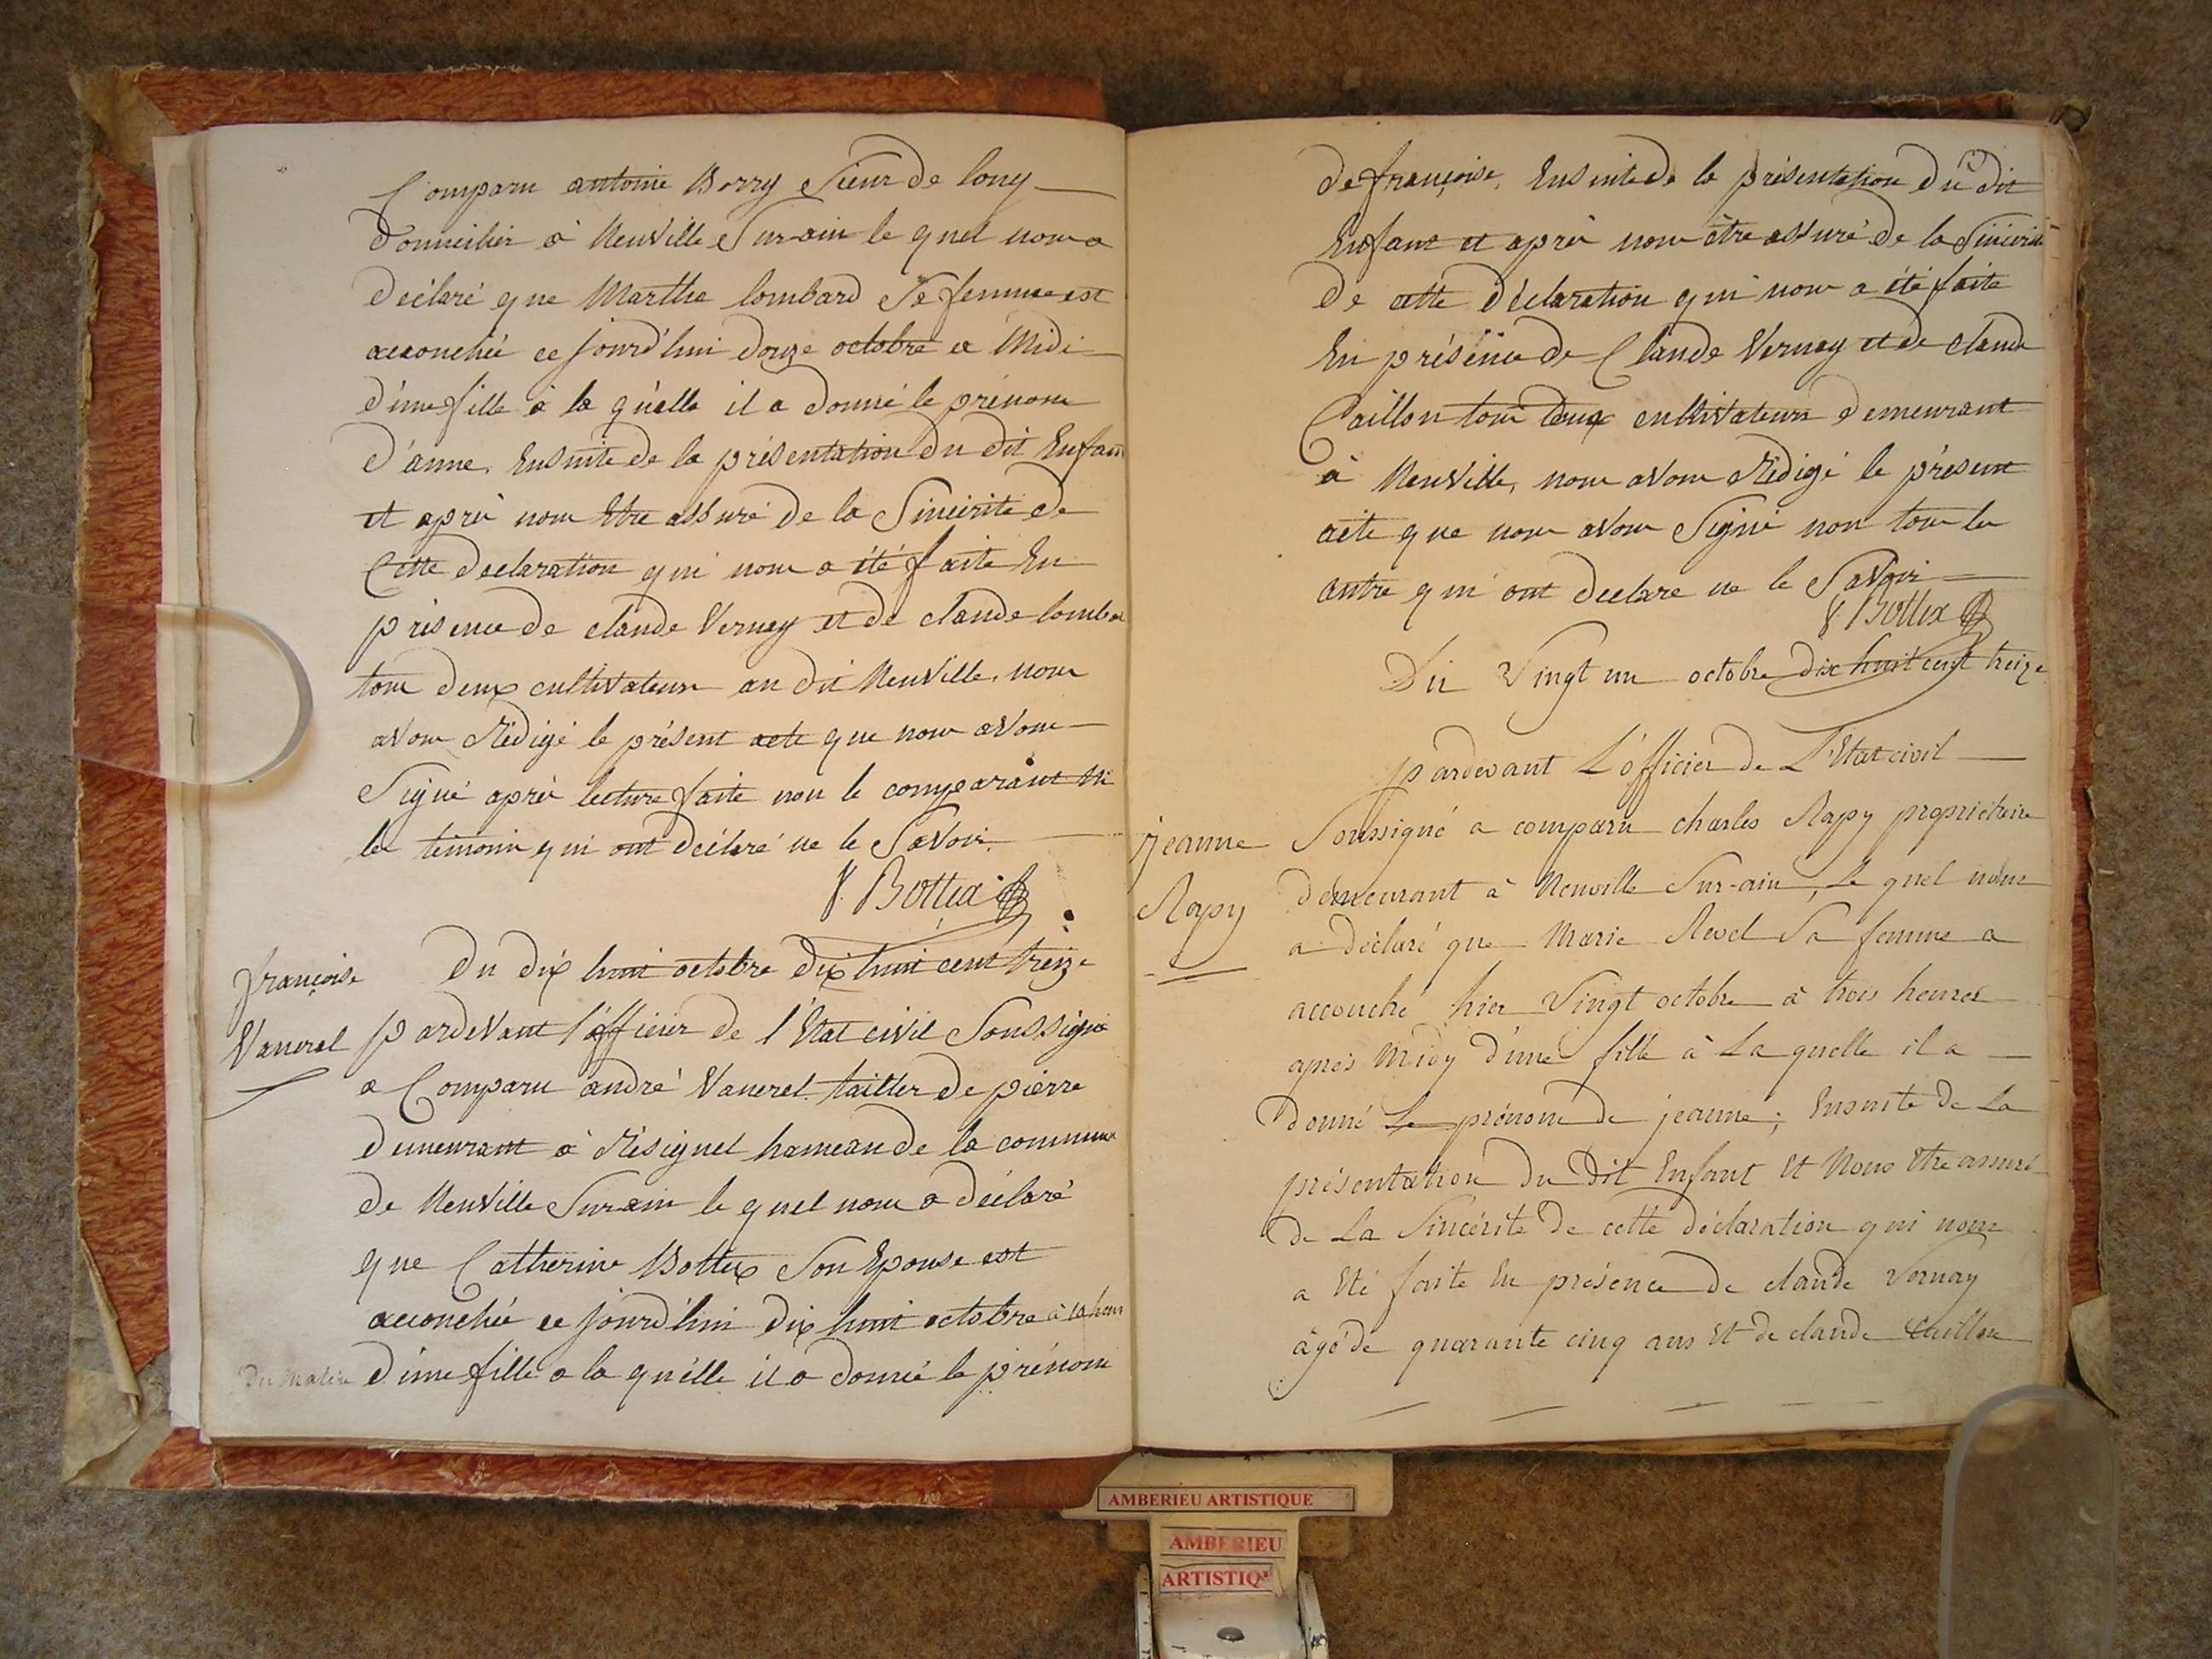 Comparu antoine Borry Sieur de long
domicilier à Neuville Sur ain le quel nous a
déclaré que Marthe lombard Sa femme est
accouchée ce jourd'hui douze octobre a Midi
d'une fille à la quelle il a donné le prénom
d'anne. Ensuite de la présentation du dit Enfant
et après nous Etre assuré de la Sincérité de
Cette declaration qui nous a été faite En
présence de claude Vernay et de claude lombar
tous deux cultivateurs au dit Neuville. nous
avons Rédigé le présent acte que nous avons
Signé après lecture faite non le comparant Ni
les témoins qui ont déclaré ne le Savoir.
Bottex
françoise
Vanerel
Du dix huit octobre dix huit cent treize
pardevant l'officier de l'Etat civil Soussigné
a Comparu andré Vanerel tailler de pierre
demeurant à Résignel hameau de la commune
de Neuville Sur ain le quel nous a déclaré
que Catherine Bottex Son Epouse est
accouchée ce jourd'hui dix huit octobre à 10 heur
du matin d'une fille a la quelle il a donné le prénom
de françoise. Ensuite de la présentation du dit
Enfant et après nous être assuré de la Sincérité
de cette déclaration qui nous a été faite
En présence de Claude Vernay et de claude
Caillon tous deux cultivateurs demeurant
à Neuville, nous avons Rédigé le présent
acte que nous avons Signé non tous les
autre qui ont declare ne le Savoir
Bottex
Du Vingt un octobre dix huit cent treize
jeanne
Rapy
pardevant L'officier de L'Etat civil
Soussigné a comparu charles Rapy propriétaire
demeurant à Neuville Sur-ain, Le quel nous
a déclaré que Marie Revel Sa femme a
accouché hier Vingt octobre à trois heures
après Midy d'une fille à La quelle il a
donné Le prénom de jeanne; Ensuite de La
présentation du Dit Enfant Et Nous Etre assuré
de La Sincérité de cette déclaration qui nous
a Eté faite En présence de claude Vernay
âgé de quarante cinq ans Et de claude Caillon
AMBERIEU ARTISTIQUE
AMBERIEU
ARTISTIQ